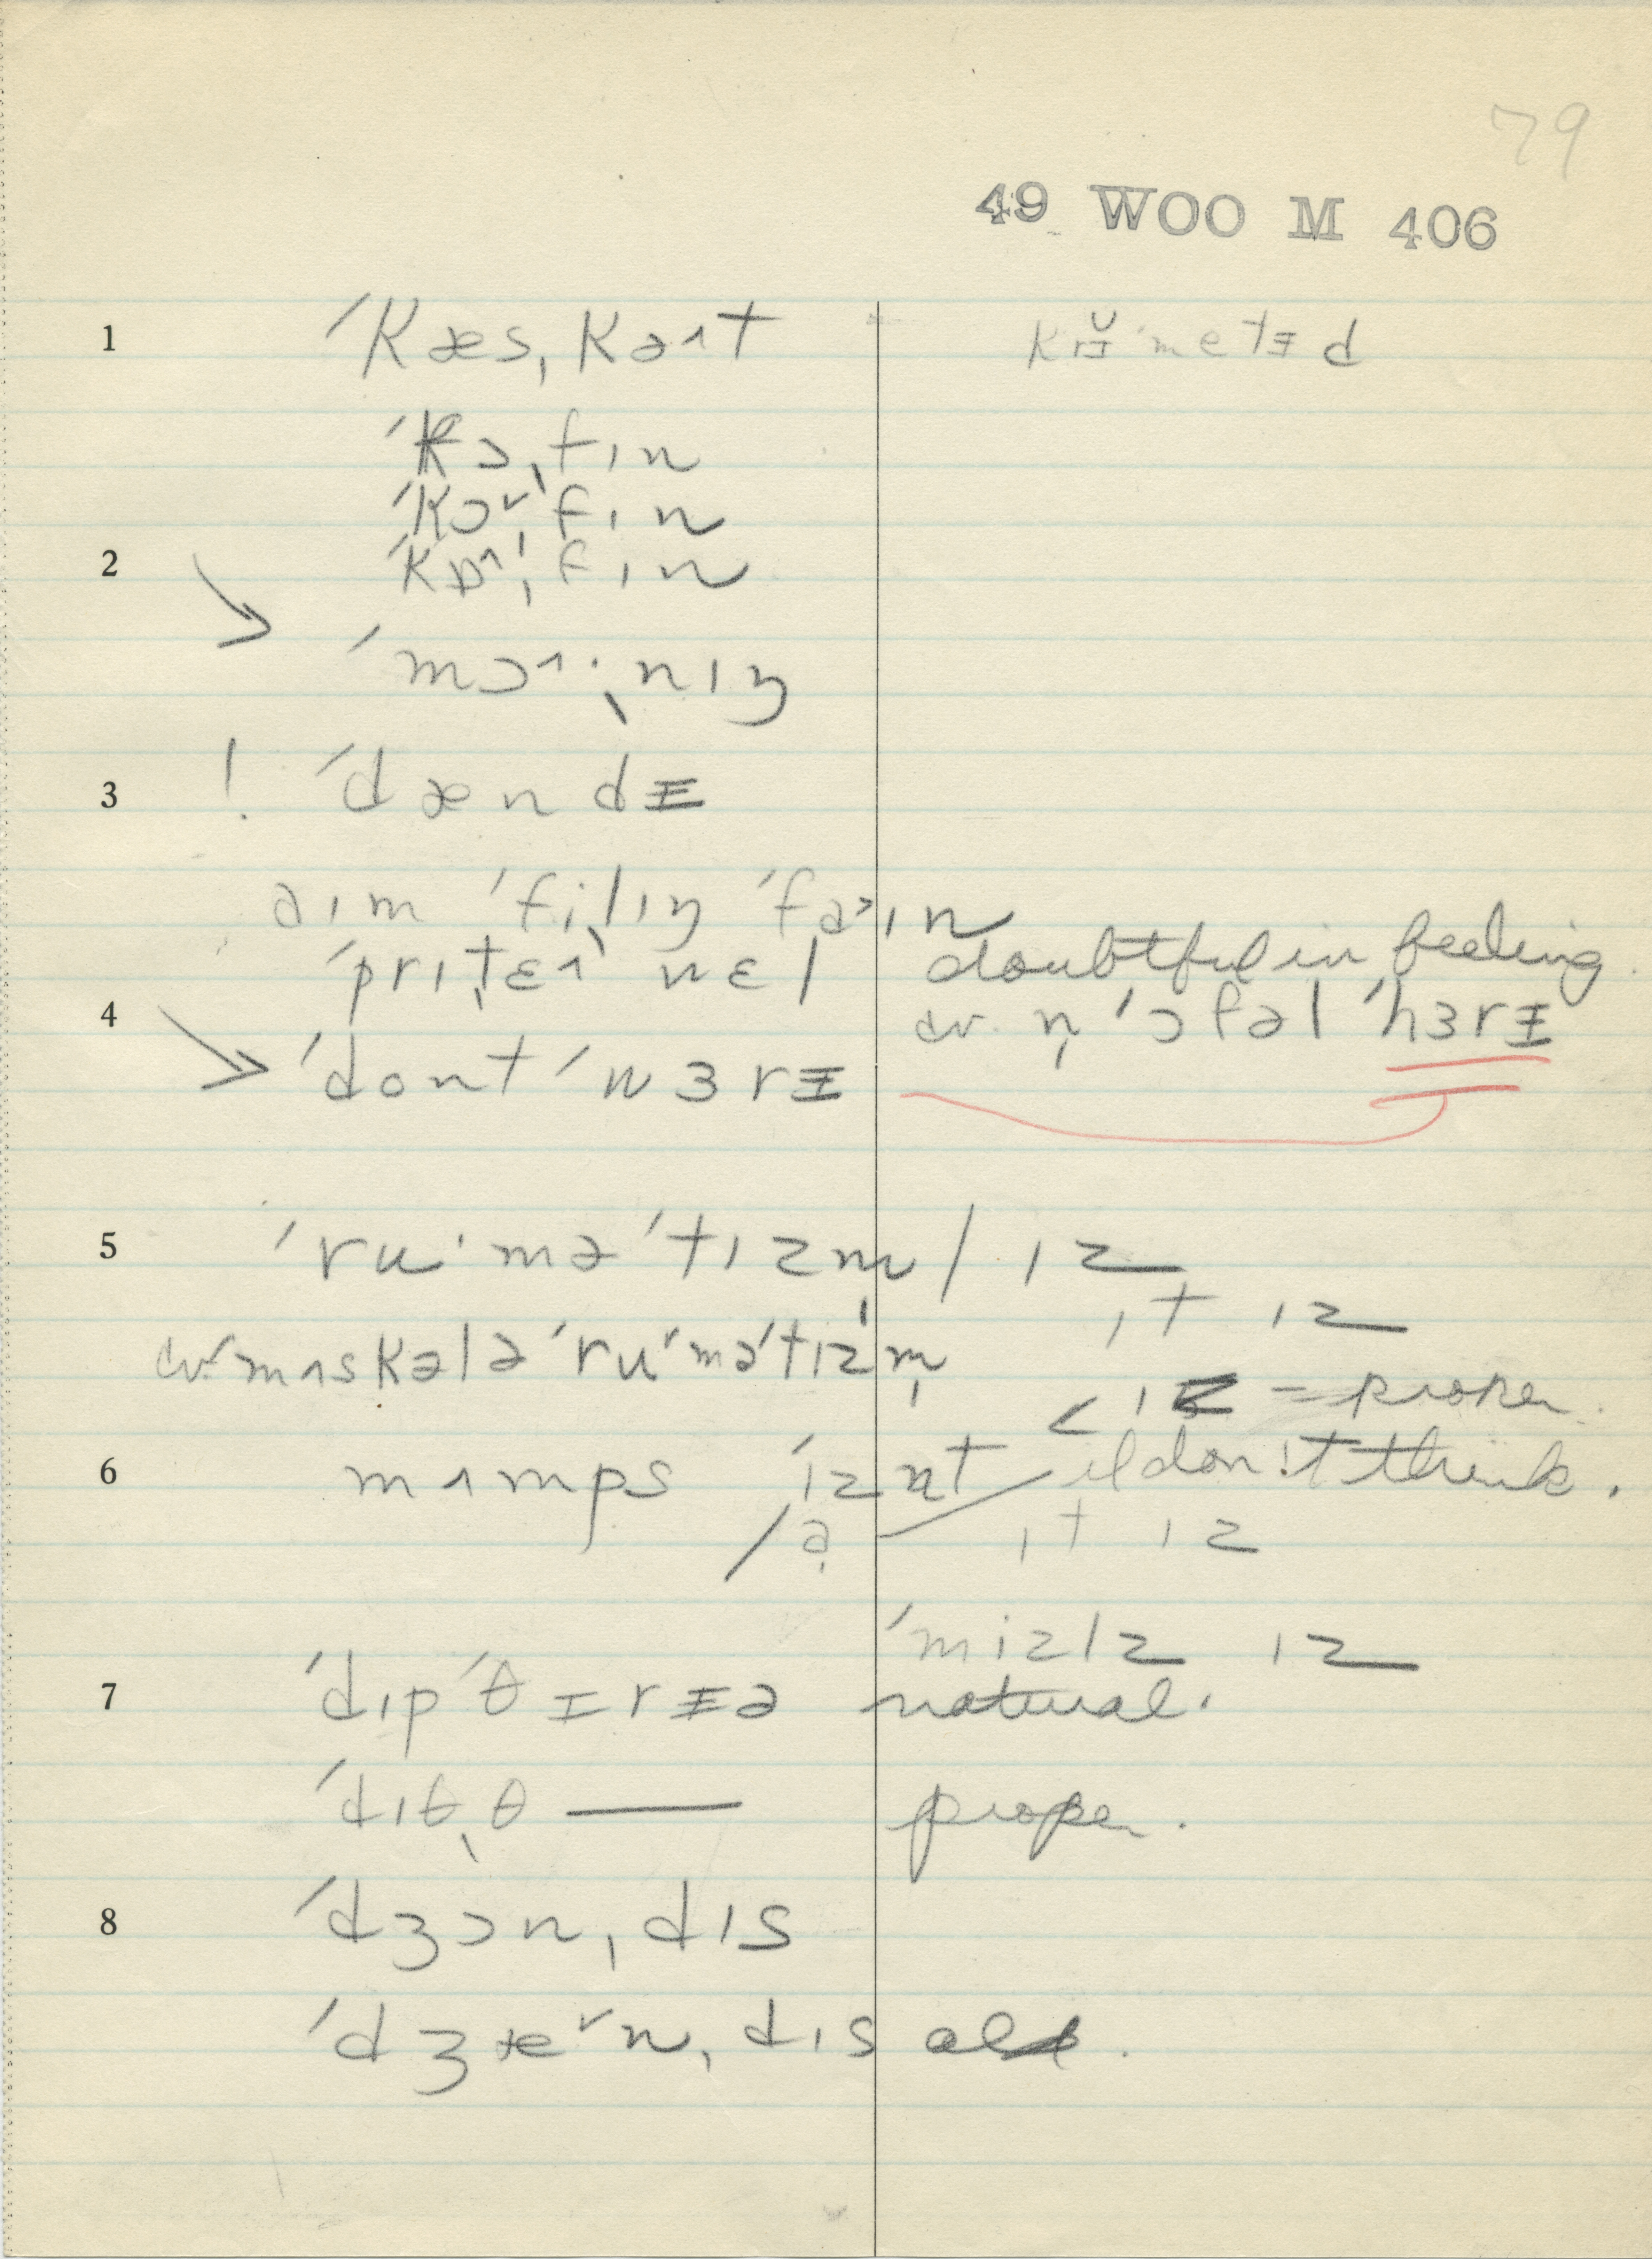 79
49 WOO M 406
1 ˈkæsˌkəʌt krɨ̆ˈmetɨd
ˈkɔˌfɪn
ˈkɔ˅ˌfɪn
2 ˈkɒ^ˌfɪn
ˈmɔ^·ˌnɪŋ
3 ! ˈdændɨ
aɪm ˈfi·lˌɪŋ ˈfa>ɪn
ˈprɪˌtɛ^ wɛl doubtful in feeling.
4 cv. n̩ ˈɔfəl ˈhɜrɨ
ˈdont ˈwɜrɨ
5 ˈru·məˈtɪzm̩ / ɪz
ɪt ɪz
cv. mʌskələ ˈru·məˈtɪzm̩
< ɪz = proper.
6 mʌmps / ˈɪznt I don't think.
/ə ɪt ɪz
ˈmizlz ɪz
7 ˈdɪpˈθɪrɨə natural.
ˈdɪθˌθ — proper.
8 ˈdʒɔnˌdɪs
ˈdʒæ˅nˌdɪs old.